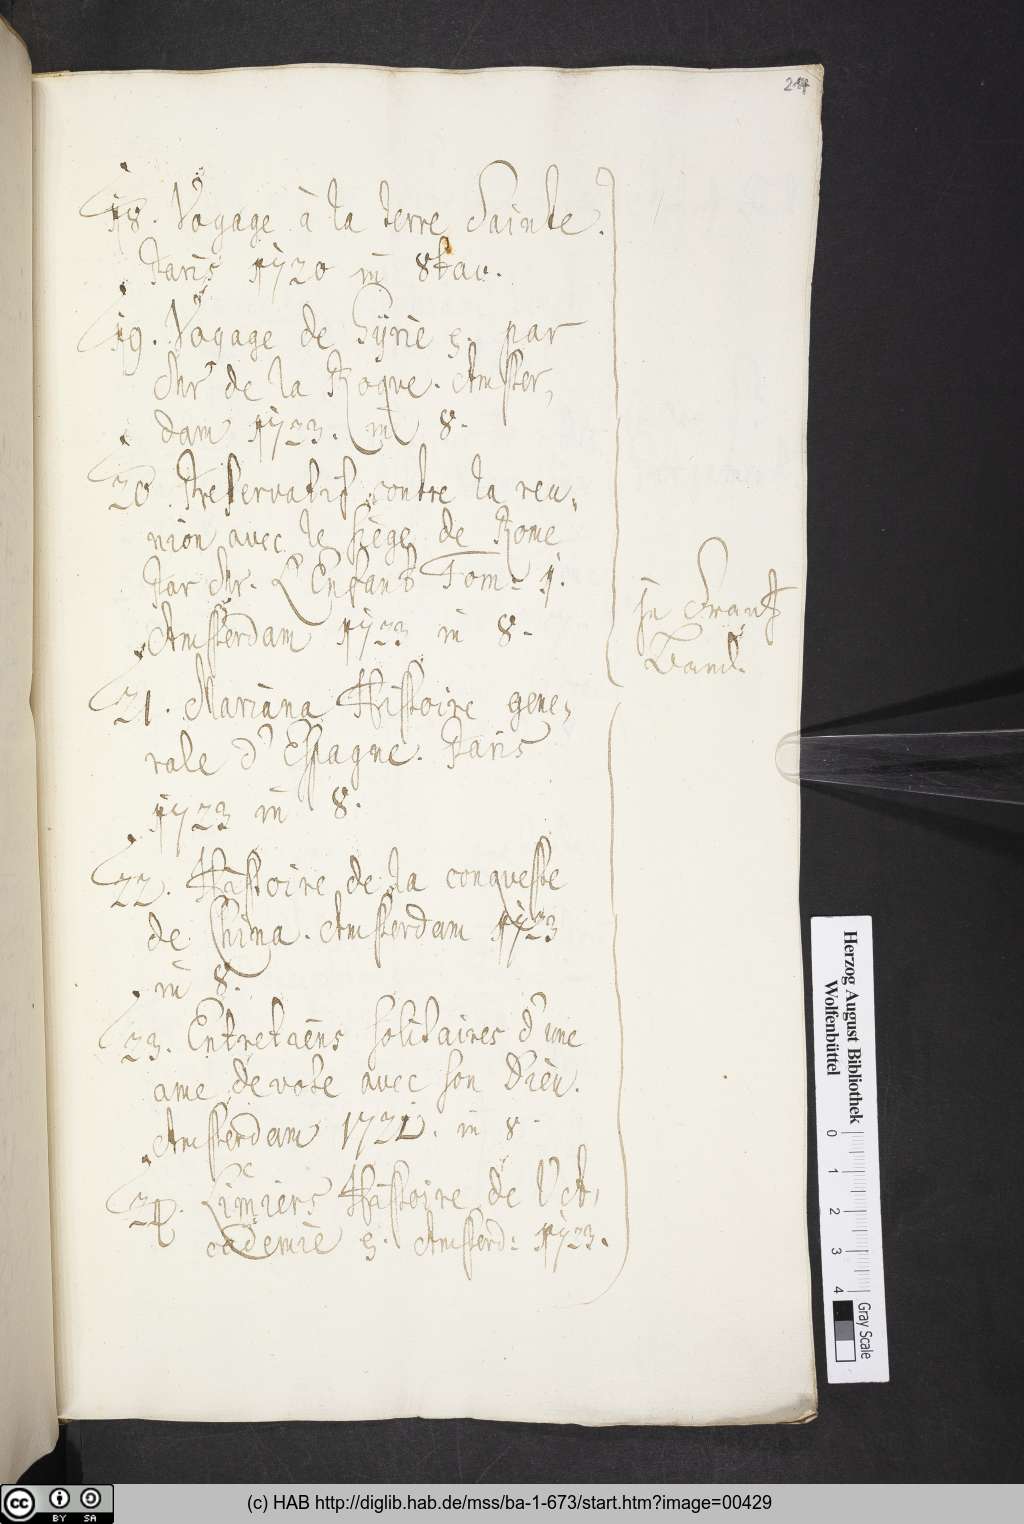 18. Voyage à la terre Sainte.
Paris 1720 in 8tav.
19. Voyage de Sÿrie par
Mr de la Roque. Amster,
dam 1723. in 8.
20 Preservatif contre la reu,
nion avec le siege de Rome
Par Mr. L'Enfant Tom: 1.
Amsterdam 1723 in 8.
21. Mariana Histoire gene,
rale d'Espagne. Paris
1723 in 8.
22. Histoire de la conqueste
de China. Amsterdam 1723
in 8.
23. Entretiens solitaires d'une
ame devote avec son Dieu.
Amsterdam in 8.
24. Limiers Histoire de
cademie Amsterd: 1723.
in Frantz
Band.
Herzog August Bibliothek
Wolfenbüttel
0 1 2 3 4
Gray Scale
cc BY SA
(c) HAB http://diglib.hab.de/mss/ba-1-673/start.htm?image=00429